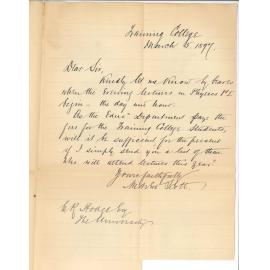 Training College
March 5. 1897.
Dear Sir,
Kindly let me know by bearer
when the Evening lectures in Physics Pt I
begin - the day and hour.
As the Educ. Department pays the
fees for the Training College Students,
will it be sufficient for the present
if I simply send you a list of those
who will attend lectures this year?
Yours faithfully
Scott
E R Hodge Esq
The University